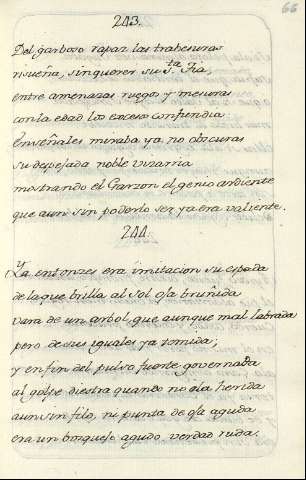 66
243.
Del garboso rapaz las trabesuras
risueña, sin querer su S.ta Fia,
entre amenazas ruegos y mesuras
con la edad los excesos confundia.
En señales miraba ya no obscuras
su despejada noble vizarria
mostrando el Garzon el genio ardiente
que aun sin poderlo ser ya era valiente.
244.
Ya entonzes era imitacion su espada
de la que brilla al Sol oja bruñida
vara de un arbol, que aunque mal labrada
pero de sus iguales ya temida;
y en fin del pulso fuerte governada
al golpe diestra quando no a la herida
aun sin filo, ni punta de oja aguda
era un bosquejo agudo verdad ruda.